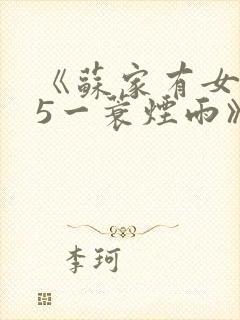 《蘇家有女
5一蓑煙雨》
李珂